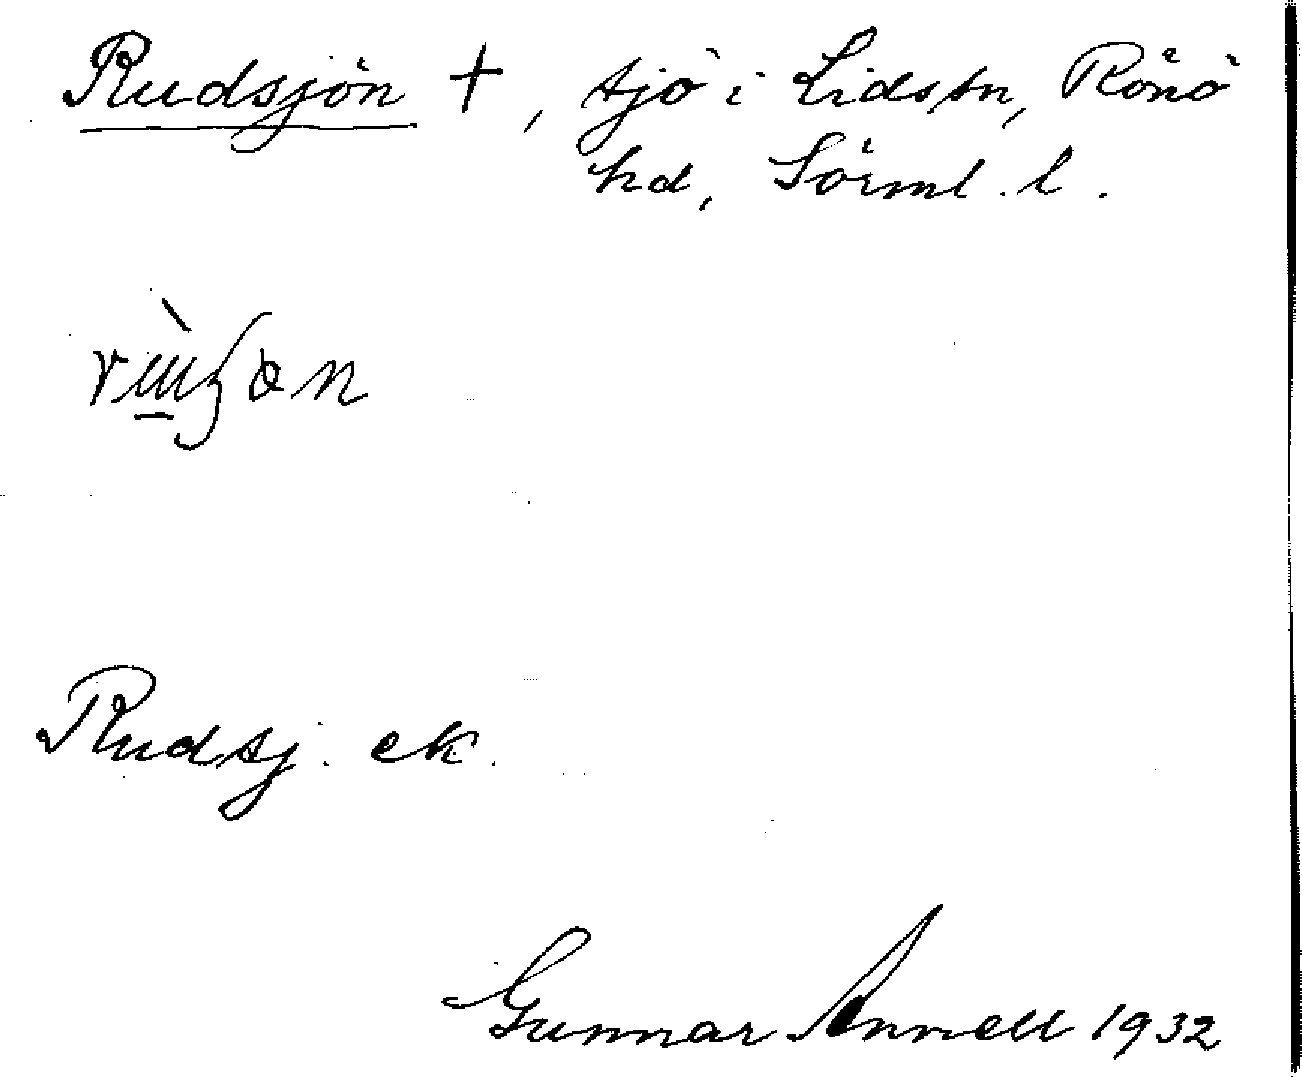 Rudsjön +, sjö i Lidstn, Rönö
hd, Sörml. l.
Rudsj. ek.
Gunnar Annell 1932